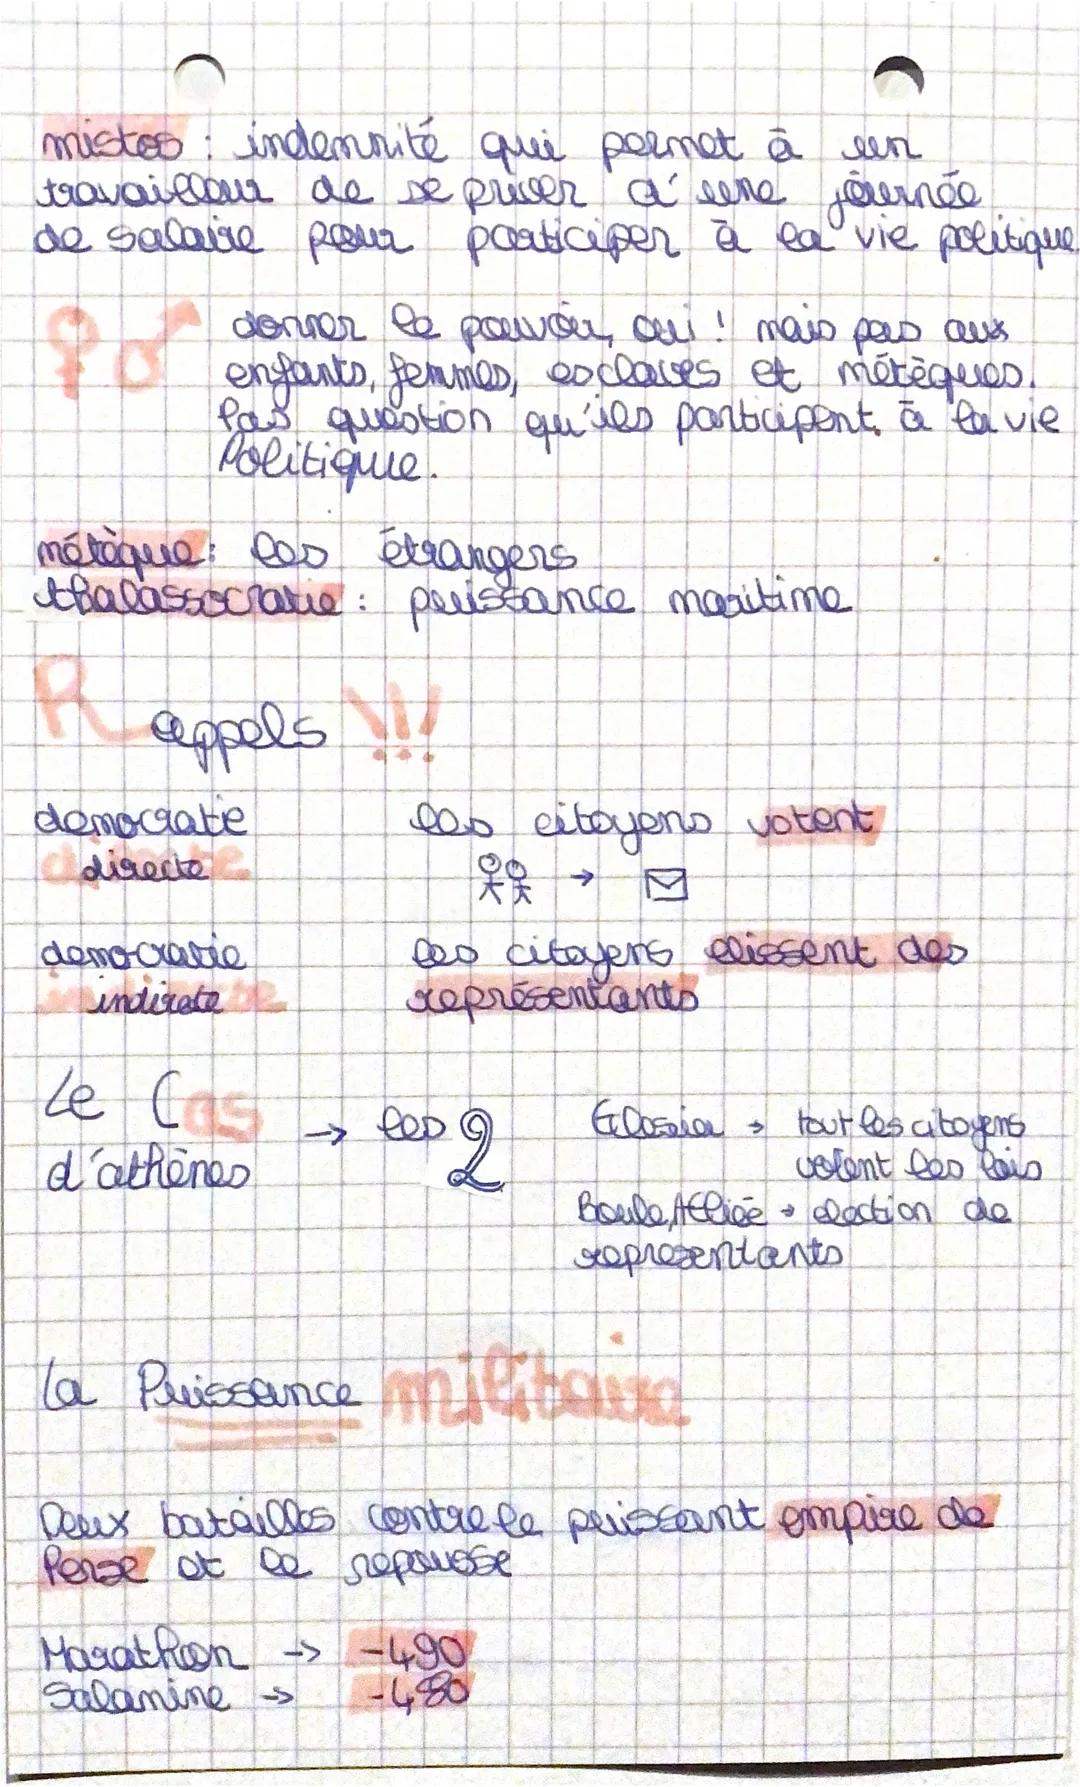 mistos : indemnité qui permet à un
travailleur de se priver d'une journée
de salaire pour participer à la vie politique
donner le pouvoir, oui ! mais pas aux
enfants, femmes, esclaves et métèques.
Pas question qu'ils participent à la vie
Politique.
métèque : les étrangers
thalassocratie : puissance maritime
Rappels !!!
democratie les citoyens votent
directe →
democratie les citoyens elissent des
indirete représentants
Le Cas → les 2 Eclosia → tout les citoyens
d'athènes votent les lois
Boule, Héliée → election de
representants
La Puissance militaire
Deux batailles contre le puissant empire de
Perse et le repousse
Marathon → -490
Salamine → -480